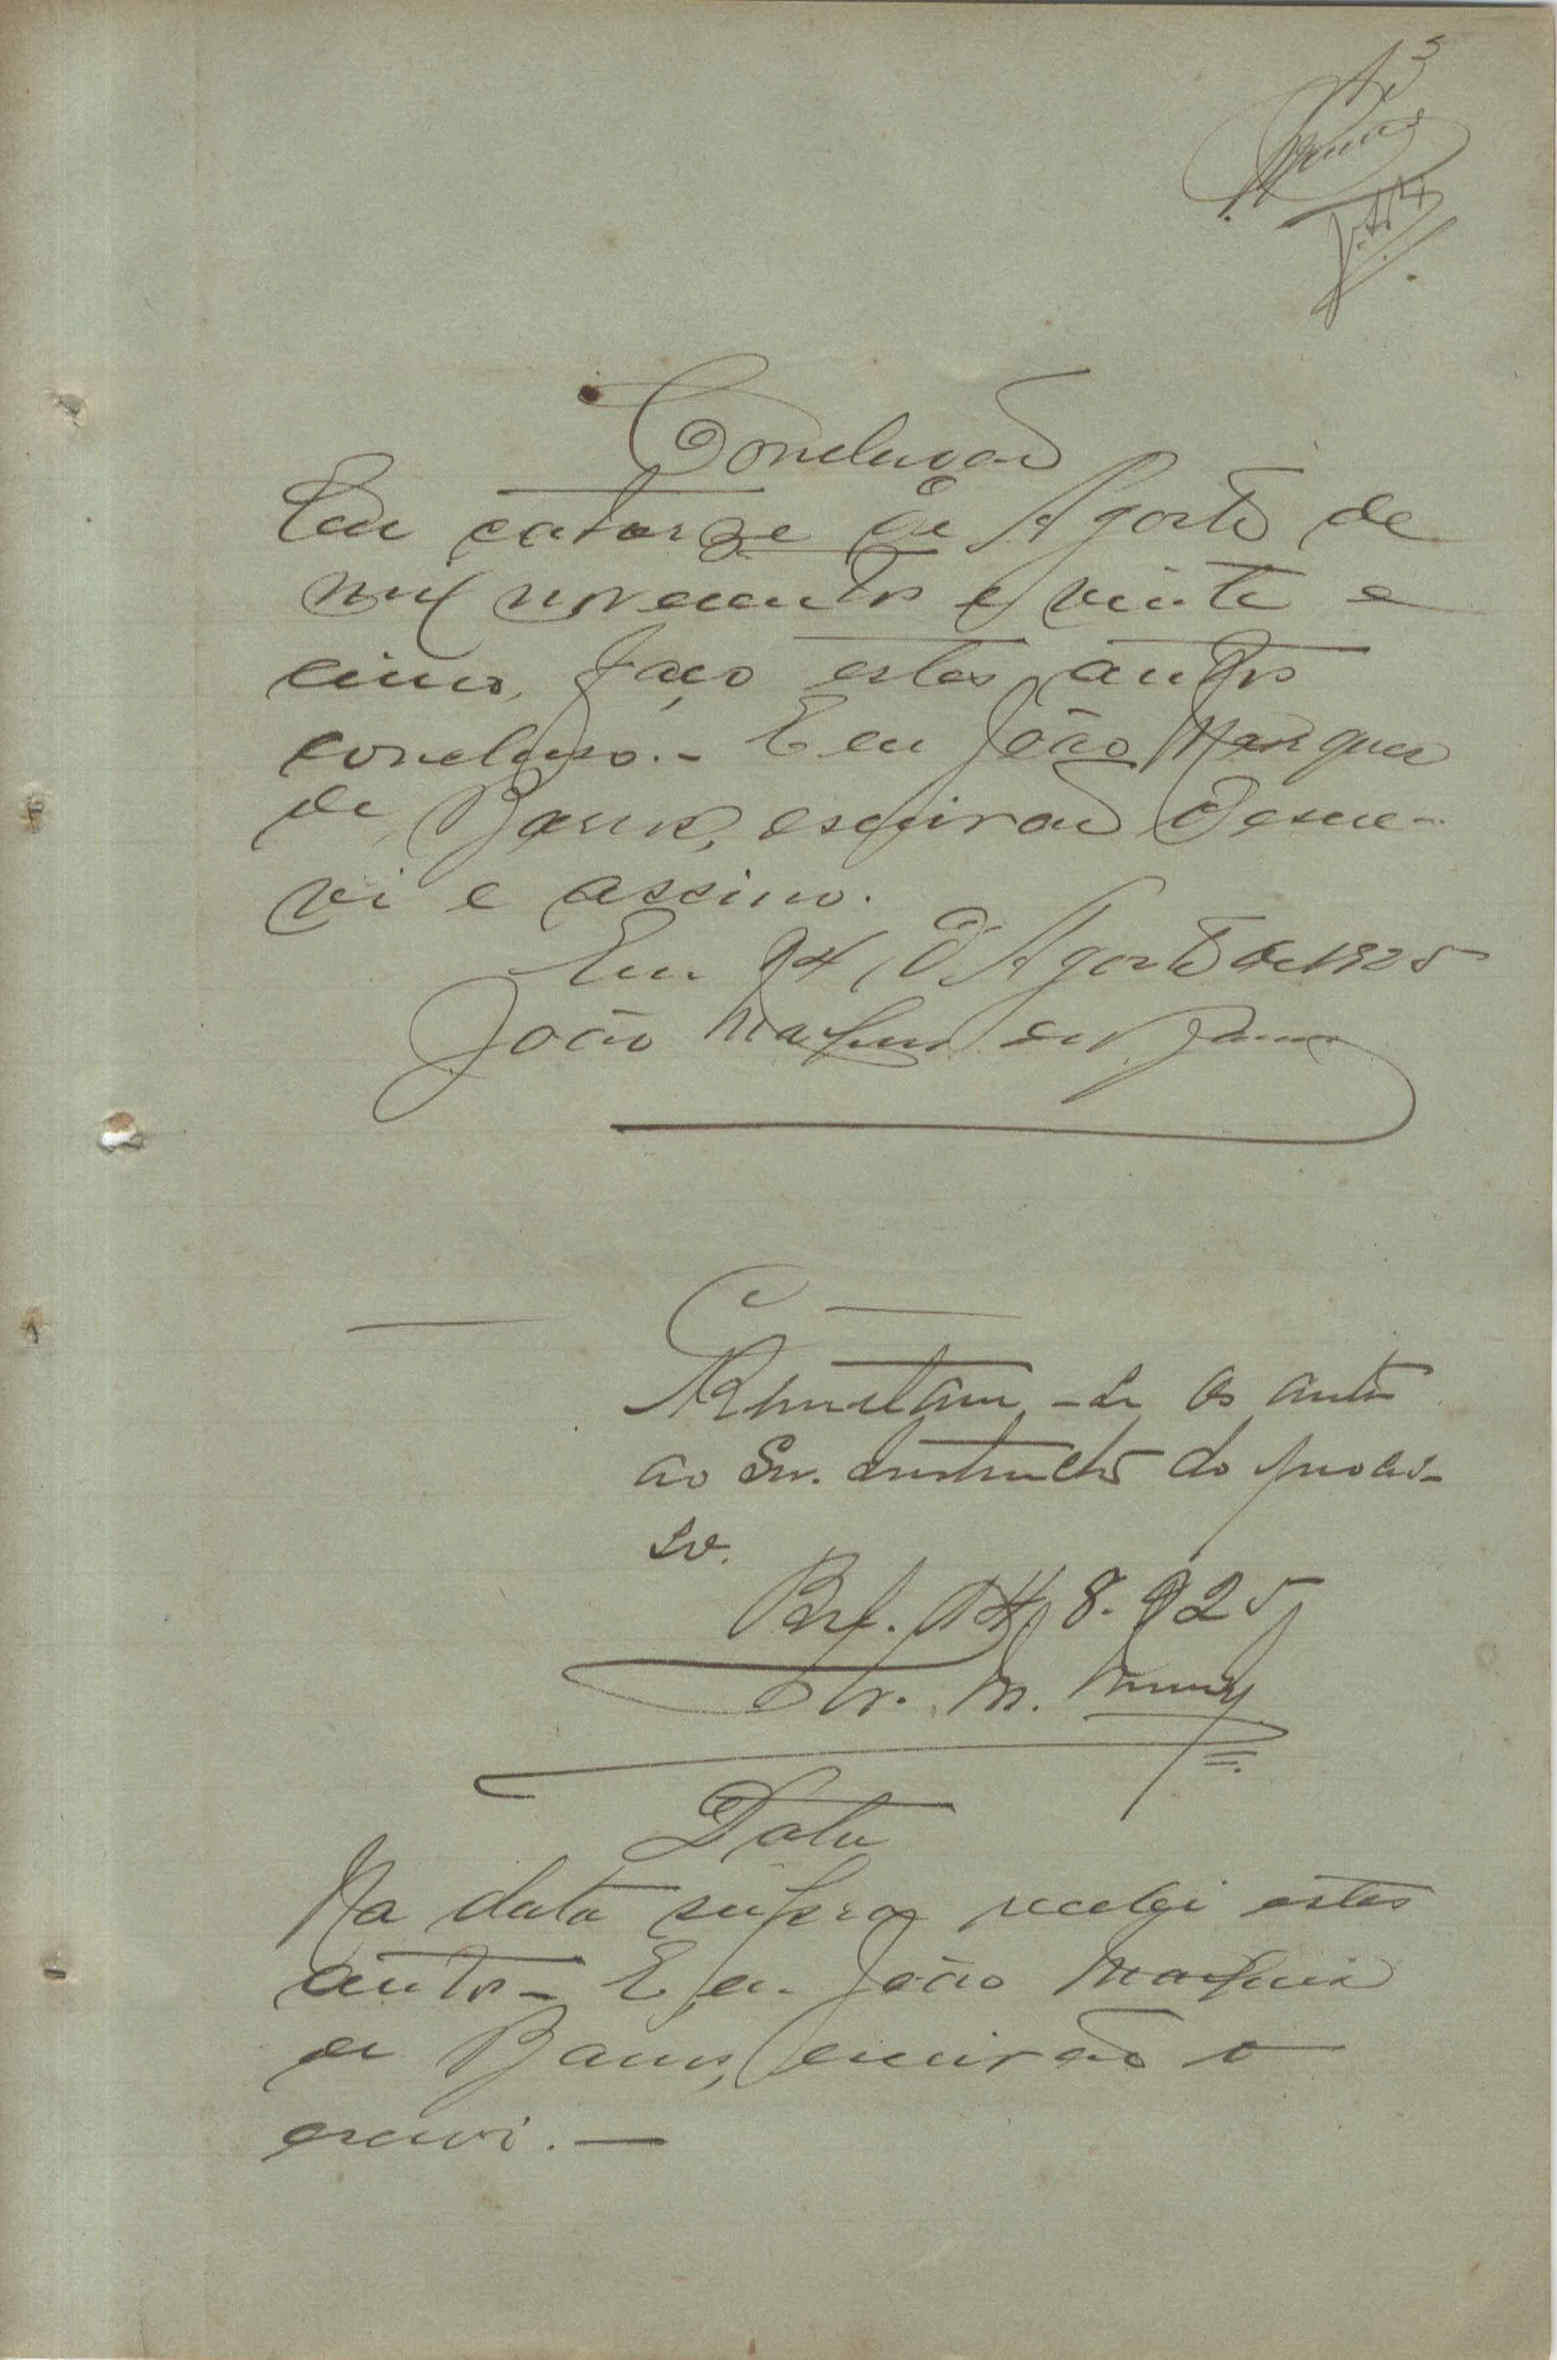 3
Conclusão
Em catorze de Agosto de
mil novecentos e vinte e
cinco, faço estes autos
concluso.- E eu João Marques
de Barros, escrivão o escre-
vi e assino.
Em 14, d'Agosto de 1925
João Marques de Barros
C
Remettam-se os autos
ao Snr. Instructor do proces-
so.
14, 8. 925
M.
Data
Na data supra recebi estes
autos- E, eu João Marques
de Barros, escrivão o
escrevi.—